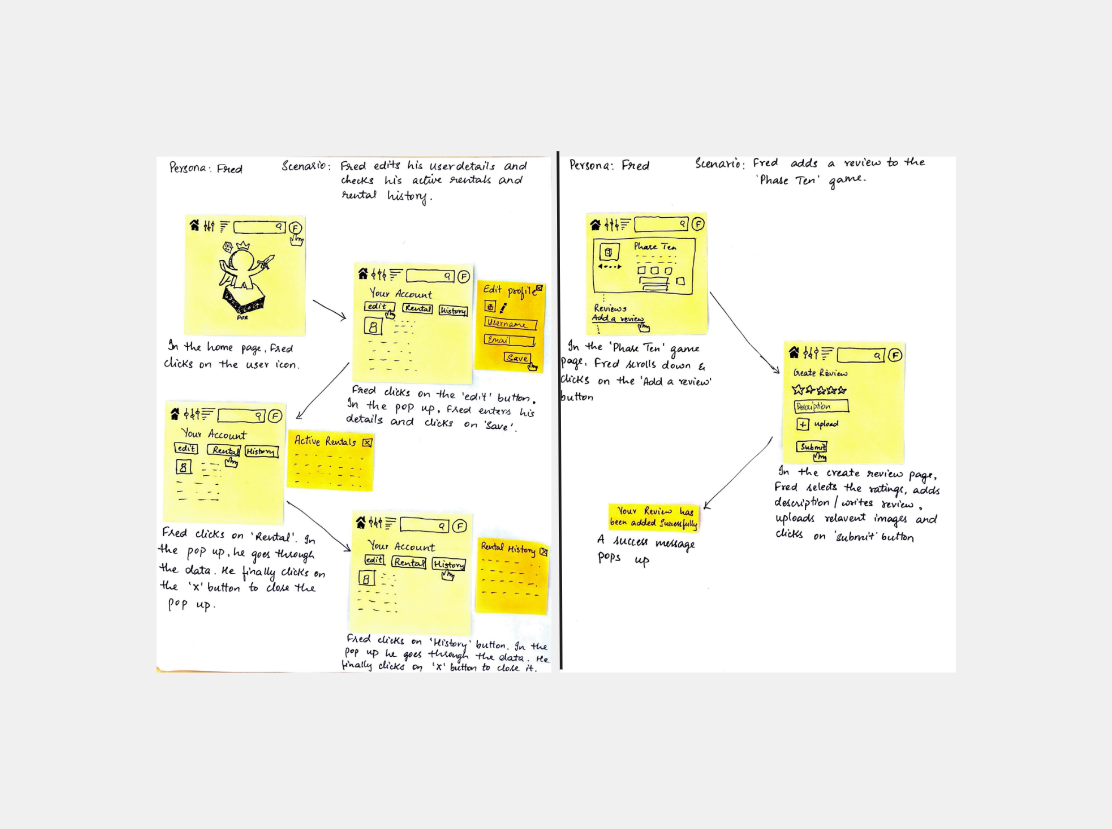 Persona: Fred
Scenario: Fred edits his user details and
checks his active rentals and
rental history.
F
In the home page, Fred
clicks on the user icon.
F
Your Account
edit Rental History
Edit profile
Username
Email
Save
Fred clicks on the 'edit' button.
In the pop up, Fred enters his
details and clicks on 'Save'.
F
Your Account
edit Rental History
Active Rentals
Fred clicks on 'Rental'. In
the pop up, he goes through
the data. He finally clicks on
the 'x' button to close the
pop up.
F
Your Account
edit Rental History
Rental History
Fred clicks on 'History' button. In the
pop up he goes through the data. He
finally clicks on 'x' button to close it.
Persona: Fred
Scenario: Fred adds a review to the
'Phase Ten' game.
F
Phase Ten
Reviews
Add a review
In the 'Phase Ten' game
page, Fred scrolls down &
clicks on the 'Add a review'
button
F
Create Review
Description
+ upload
Submit
In the create review page,
Fred selects the ratings, adds
description / writes review,
uploads relavent images and
clicks on 'submit' button
Your Review has
been added Successfully
A success message
pops up